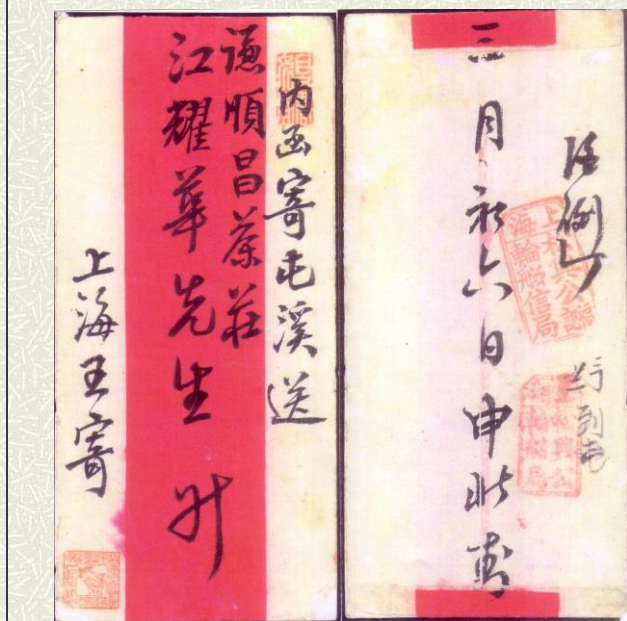 内函寄屯溪送
謙順昌茶莊
江耀華先生 升
上海王寄
三月初六日申
上海
輪船信局
到屯